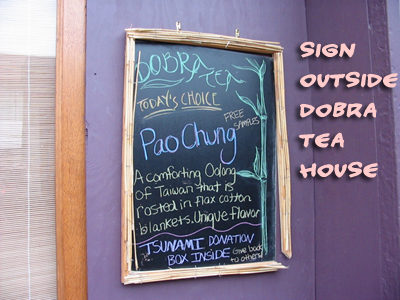 DOBRA TEA
TODAY'S CHOICE
FREE
SAMPLES
Pao Chung
A comforting Oolong
of Taiwan that is
rosted in flax cotton
blankets. Unique flavor
TSUNAMI DONATION
BOX INSIDE Give back
to others
SIGN
OUTSIDE
DOBRA
TEA
HOUSE